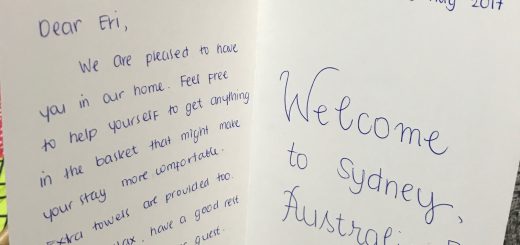 Dear Eri,
We are pleased to have
you in our home. Feel free
to help yourself to get anything
in the basket that might make
your stay more comfortable.
Extra towels are provided too.
have a good rest
guest.
2017
Welcome
to Sydney,